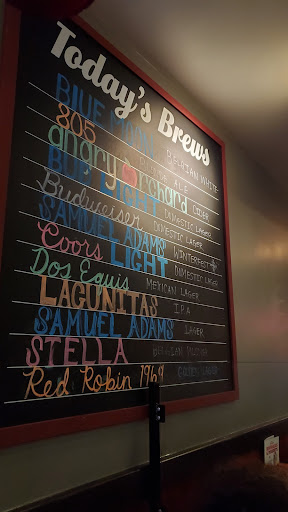 Today's Brews
BLUE MOON BELGIAN WHITE
805 ALE
angry orchard CIDER
BUD LIGHT DOMESTIC LAGER
Budweiser DOMESTIC LAGER
SAMUEL ADAMS WINTERFEST
Coors LIGHT DOMESTIC LAGER
Dos Equis MEXICAN LAGER
LAGUNITAS IPA
SAMUEL ADAMS LAGER
STELLA
Red Robin 1969 LAGER